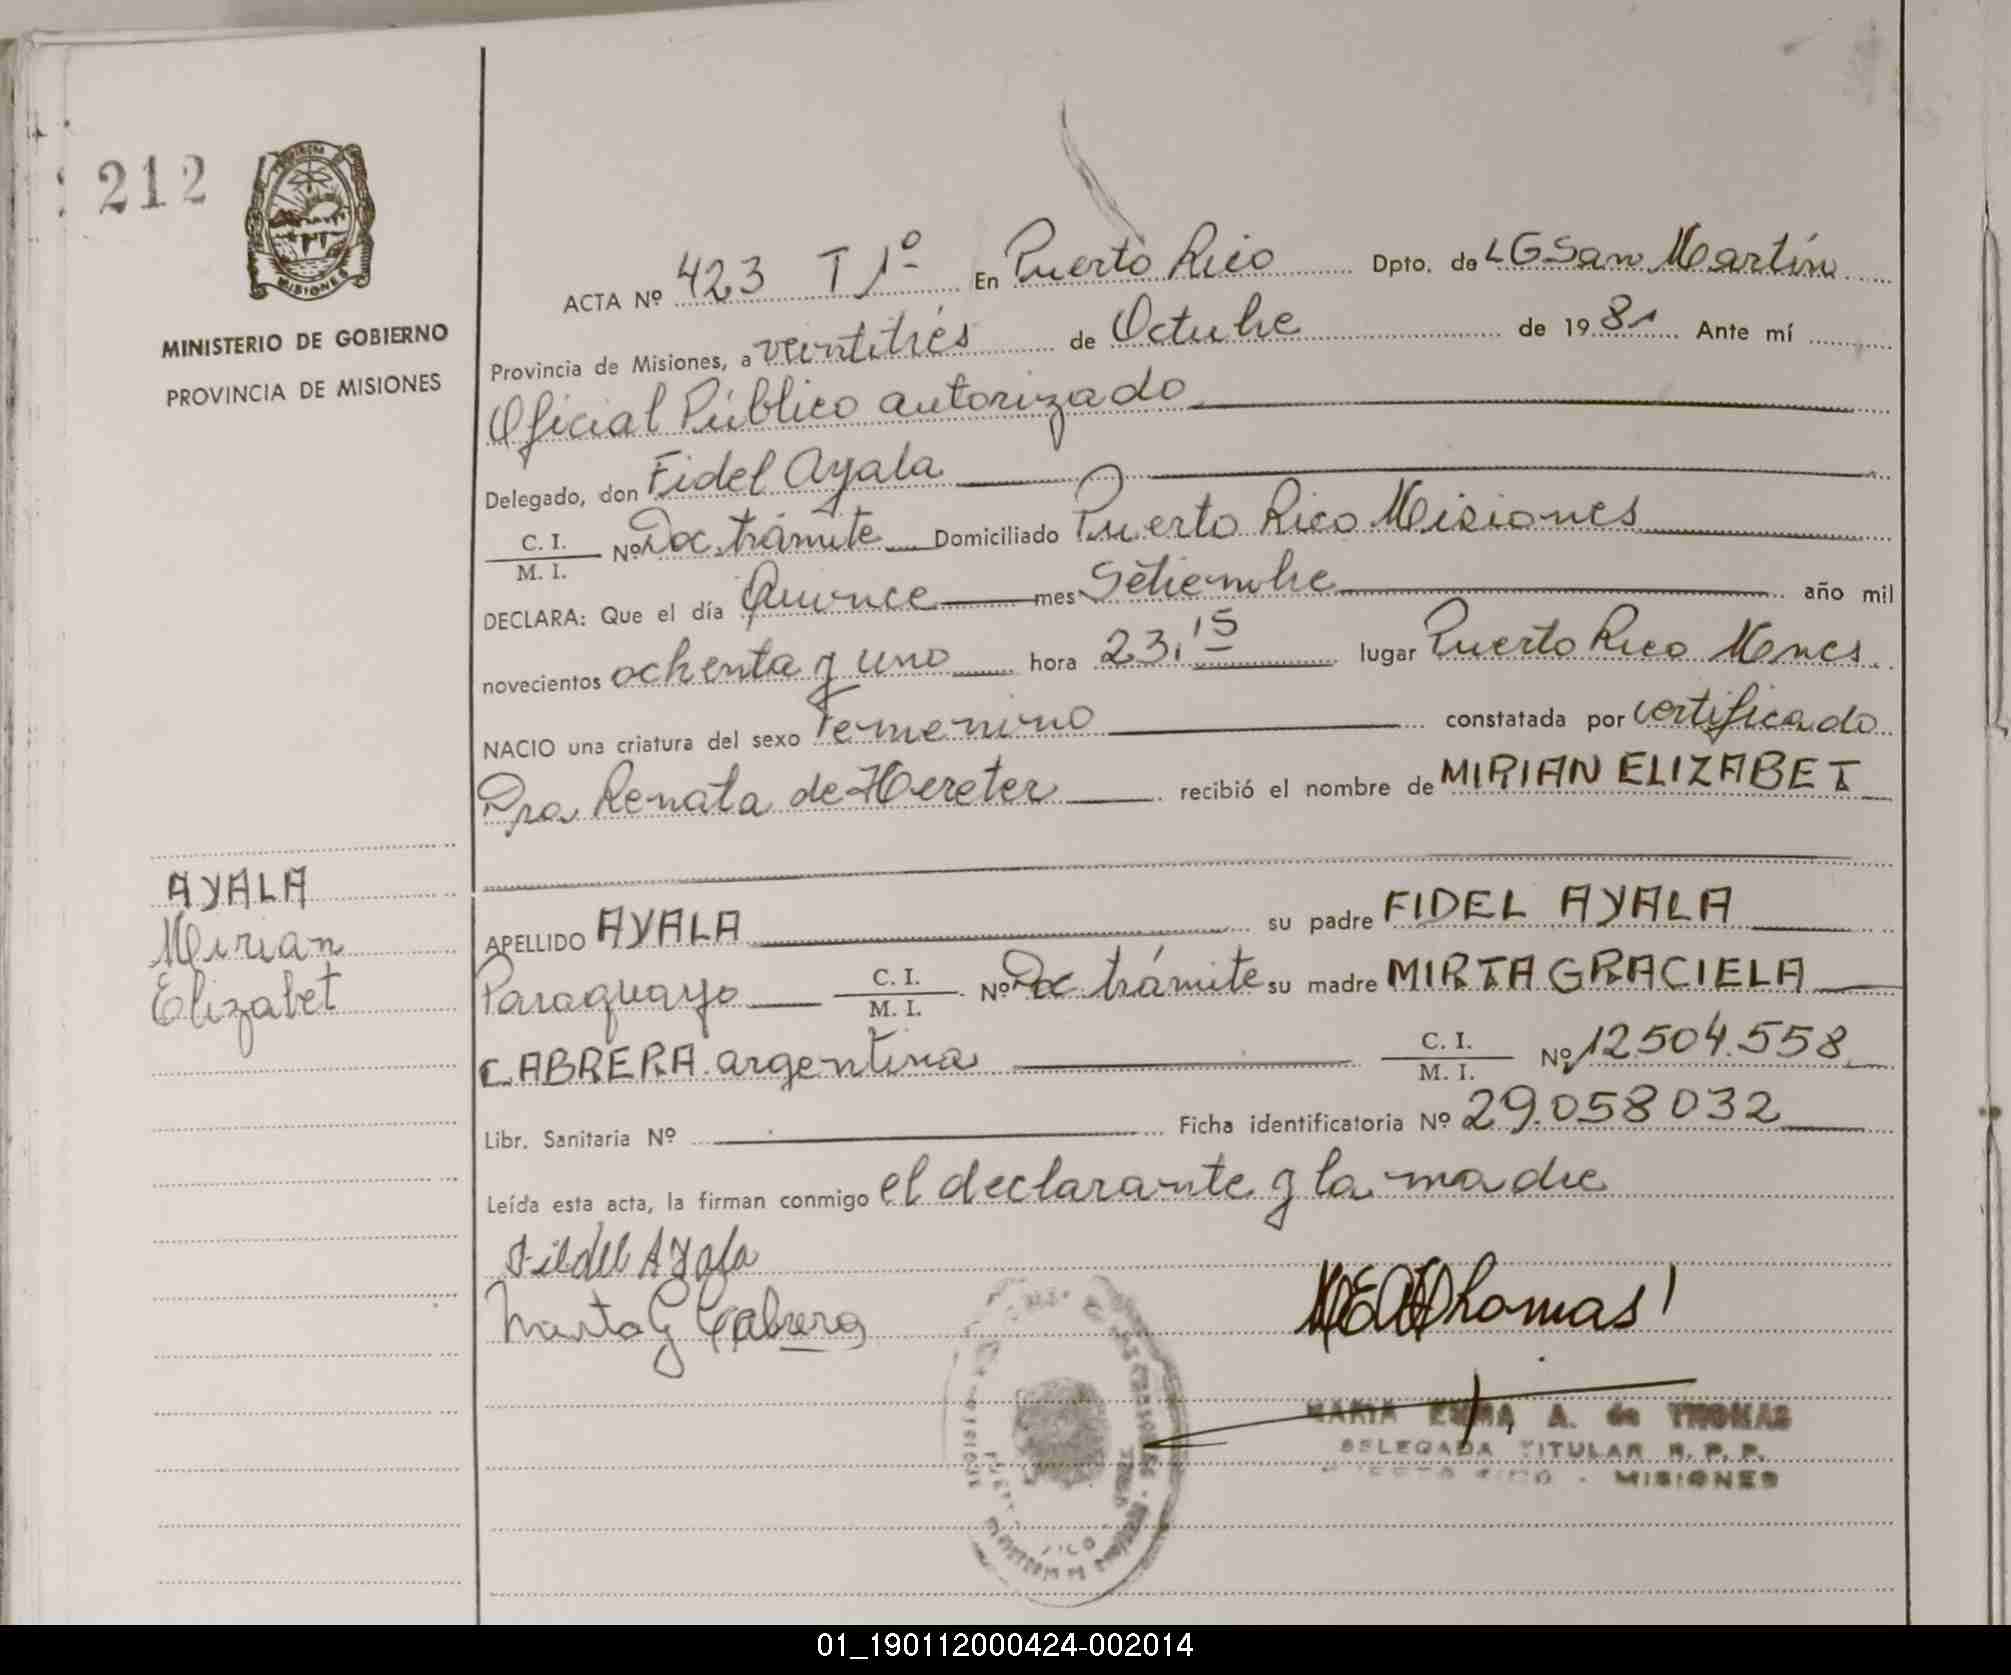 212
PROVINCIA
MISIONES
MINISTERIO DE GOBIERNO
PROVINCIA DE MISIONES
ACTA Nº 423 T 1º En Puerto Rico Dpto. de LGSan Martín
Provincia de Misiones, a veintitrés de Octubre de 1981 Ante mí
Oficial Público autorizado
Delegado, don Fidel Ayala
C. I.
M. I.
Nº Doc. trámite Domiciliado Puerto Rico Misiones
DECLARA: Que el día Quince mes Setiembre año mil
novecientos ochenta y uno hora 23,15 lugar Puerto Rico Mnes.
NACIO una criatura del sexo Femenino constatada por certificado
Dra Renata de Hereter recibió el nombre de MIRIAN ELIZABET
AYALA
Mirian
Elizabet
APELLIDO AYALA su padre FIDEL AYALA
Paraguayo C. I.
M. I.
Nº Doc trámite su madre MIRTA GRACIELA
CABRERA argentina C. I.
M. I.
Nº 12504.558
Libr. Sanitaria Nº Ficha identificatoria Nº 29.058032
Leída esta acta, la firman conmigo el declarante y la madre
Fidel Ayala
G Cabrera
Thomas
MARIA EMMA A. de THOMAS
DELEGADA TITULAR R. P. P.
PUERTO RICO - MISIONES
01_190112000424-002014